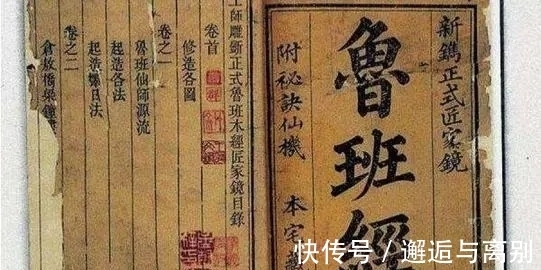 新鐫正式匠家鏡
魯班經
附祕訣仙機
本宅藏
師雕斲正式魯班木經匠家鏡目錄
卷首
修造各圖
卷之一
魯班仙師源流
起造各法
起造雜日法
卷之二
倉敖橋梁鐘
快传号 / 邂逅与离别